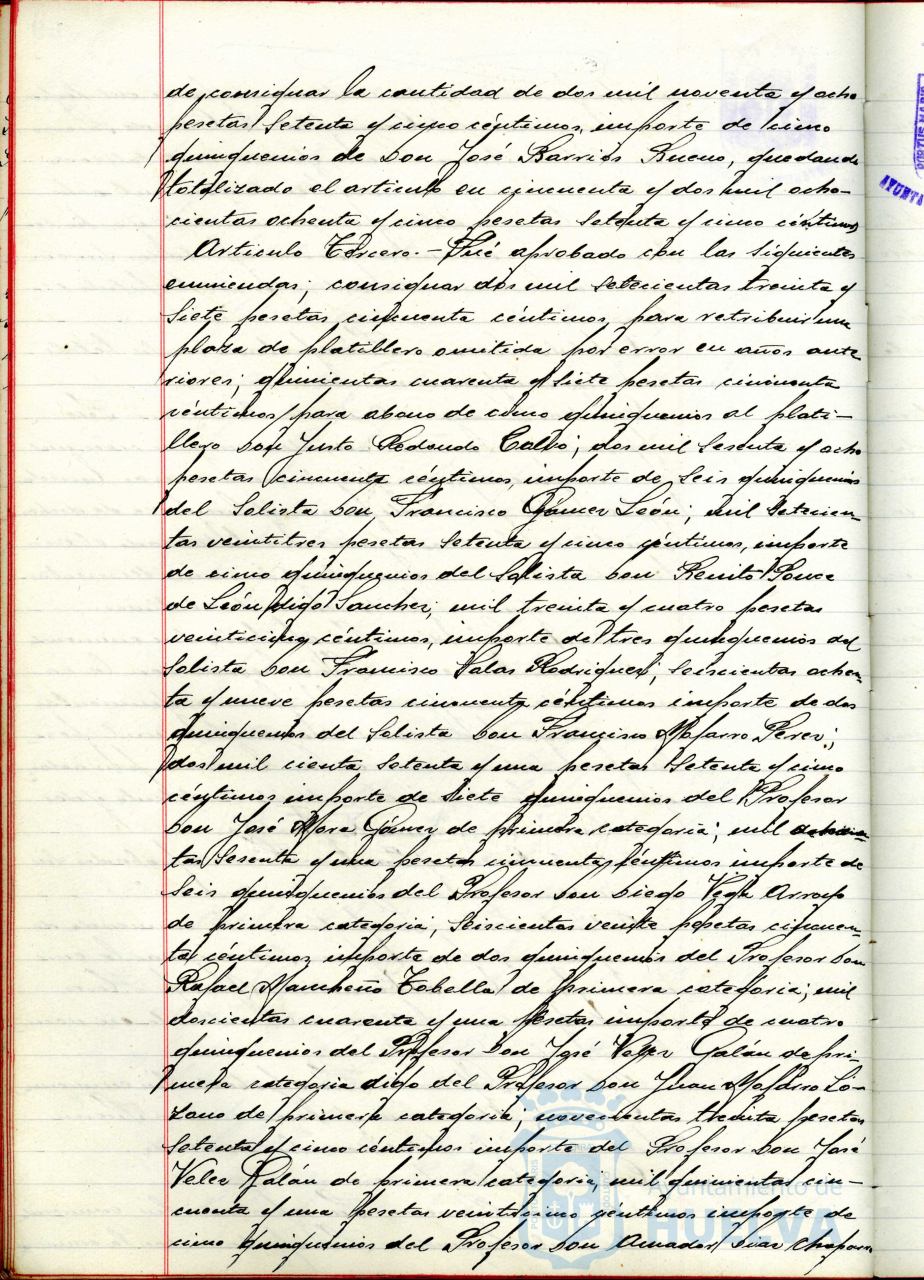 de consignar la cantidad de dos mil noventa y ocho
pesetas setenta y cinco céntimos, importe de cinco
quinquenios de Don José Barrios Bueno, quedando
totalizado el articulo en cincuenta y dos mil ocho-
cientas ochenta y cinco pesetas setenta y cinco céntimos
Articulo Tercero.- Fué aprobado con las siguientes
enmiendas; consignar dos mil setecientas treinta y
siete pesetas cincuenta céntimos, para retribuir una
plaza de platillero omitida por error en años ante-
riores; quinientas cuarenta y siete pesetas cincuenta
céntimos para abono de cinco quinquenios al plati-
llero Don Justo Redondo Calvo; dos mil sesenta y ocho
pesetas cincuenta céntimos, importe de seis quinquenios
del Solista Don Francisco Gómez León; mil setecien-
tas veintitres pesetas setenta y cinco céntimos, importe
de cinco quinquenios del Solista Don Benito Ponce
de León digo Sanchez; mil treinta y cuatro pesetas
veinticinco céntimos, importe de tres quinquenios del
Solista Don Francisco Salas Rodriguez; seiscientas ochen-
ta y nueve pesetas cincuenta céntimos importe de dos
quinquenios del Solista Don Francisco Mojarro Perez;
dos mil cienta setenta y una pesetas setenta y cinco
céntimos importe de siete quinquenios del Profesor
Don José Mora Gómez de primera categoria; mil ochocien-
tas sesenta y una pesetas cincuenta céntimos importe de
seis quinquenios del Profesor Don Diego Vega Arroyo
de primera categoria; seiscientas veinte pesetas cincuen-
ta céntimos importe de dos quinquenios del Profesor Don
Rafael Mancheño Tobella de primera categoria; mil
doscientas cuarenta y una pesetas importe de cuatro
quinquenios del Profesor Don José Velez Galán de pri-
mera categoria digo del Profesor Don Juan Mojarro Lo-
zano de primera categoria; novecientas treinta pesetas
setenta y cinco céntimos importe del Profesor Don José
Velez Galán de primera categoria, mil quinientas cin-
cuenta y una pesetas veinticinco céntimos importe de
cinco quinquenios del Profesor Don Amador Diaz Chaparro
Ayuntamiento de
HUELVA